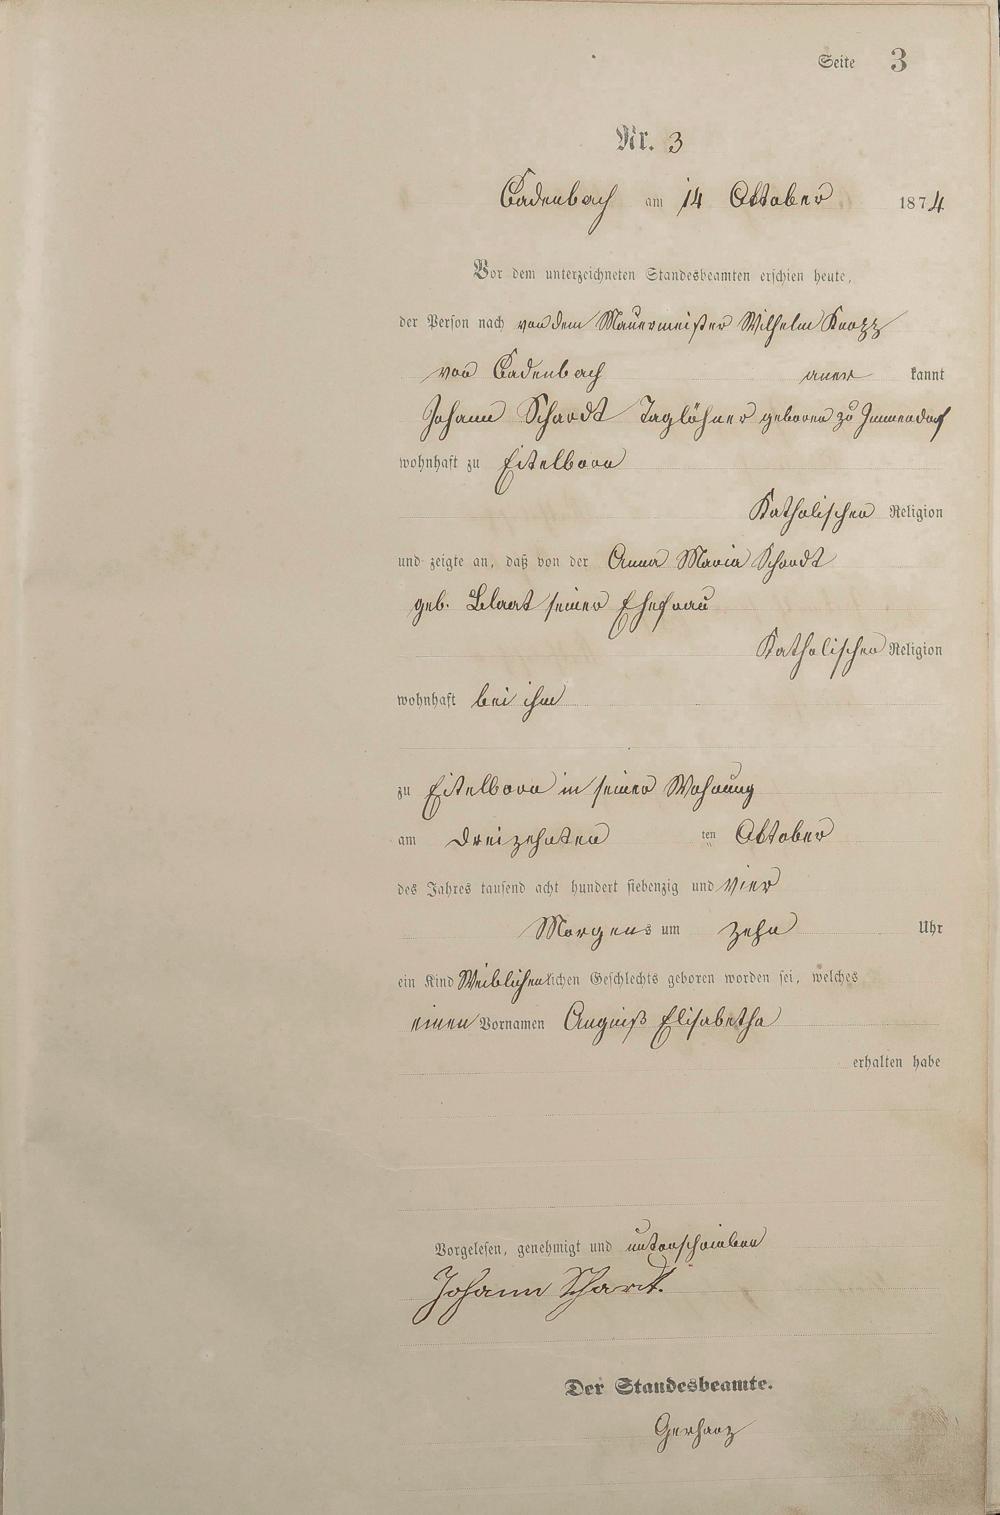 Seite 3
Nr. 3
Cadenbach am 14 Oktober 1874
Vor dem unterzeichneten Standesbeamten erschien heute,
der Person nach von dem Mauermeister Wilhelm Knopp
von Cadenbach aner kannt
Johann Schardt Taglöhner geboren zu Immendorf
wohnhaft zu Eitelborn
Katholischen Religion
und zeigte an, daß von der Anna Maria Schardt
geb. Blaat seiner Ehefrau
Katholischen Religion
wohnhaft bei ihm
zu Eitelborn in seiner Wohnung
am dreizehnten ten Oktober
des Jahres tausend acht hundert siebenzig und vier
Morgens um zehn Uhr
ein Kind Weiblichen lichen Geschlechts geboren worden sei, welches
einen Vornamen Angniß Elisabetha
erhalten habe
Vorgelesen, genehmigt und unterschrieben
Johann Schardt.
Der Standesbeamte.
Gerharz